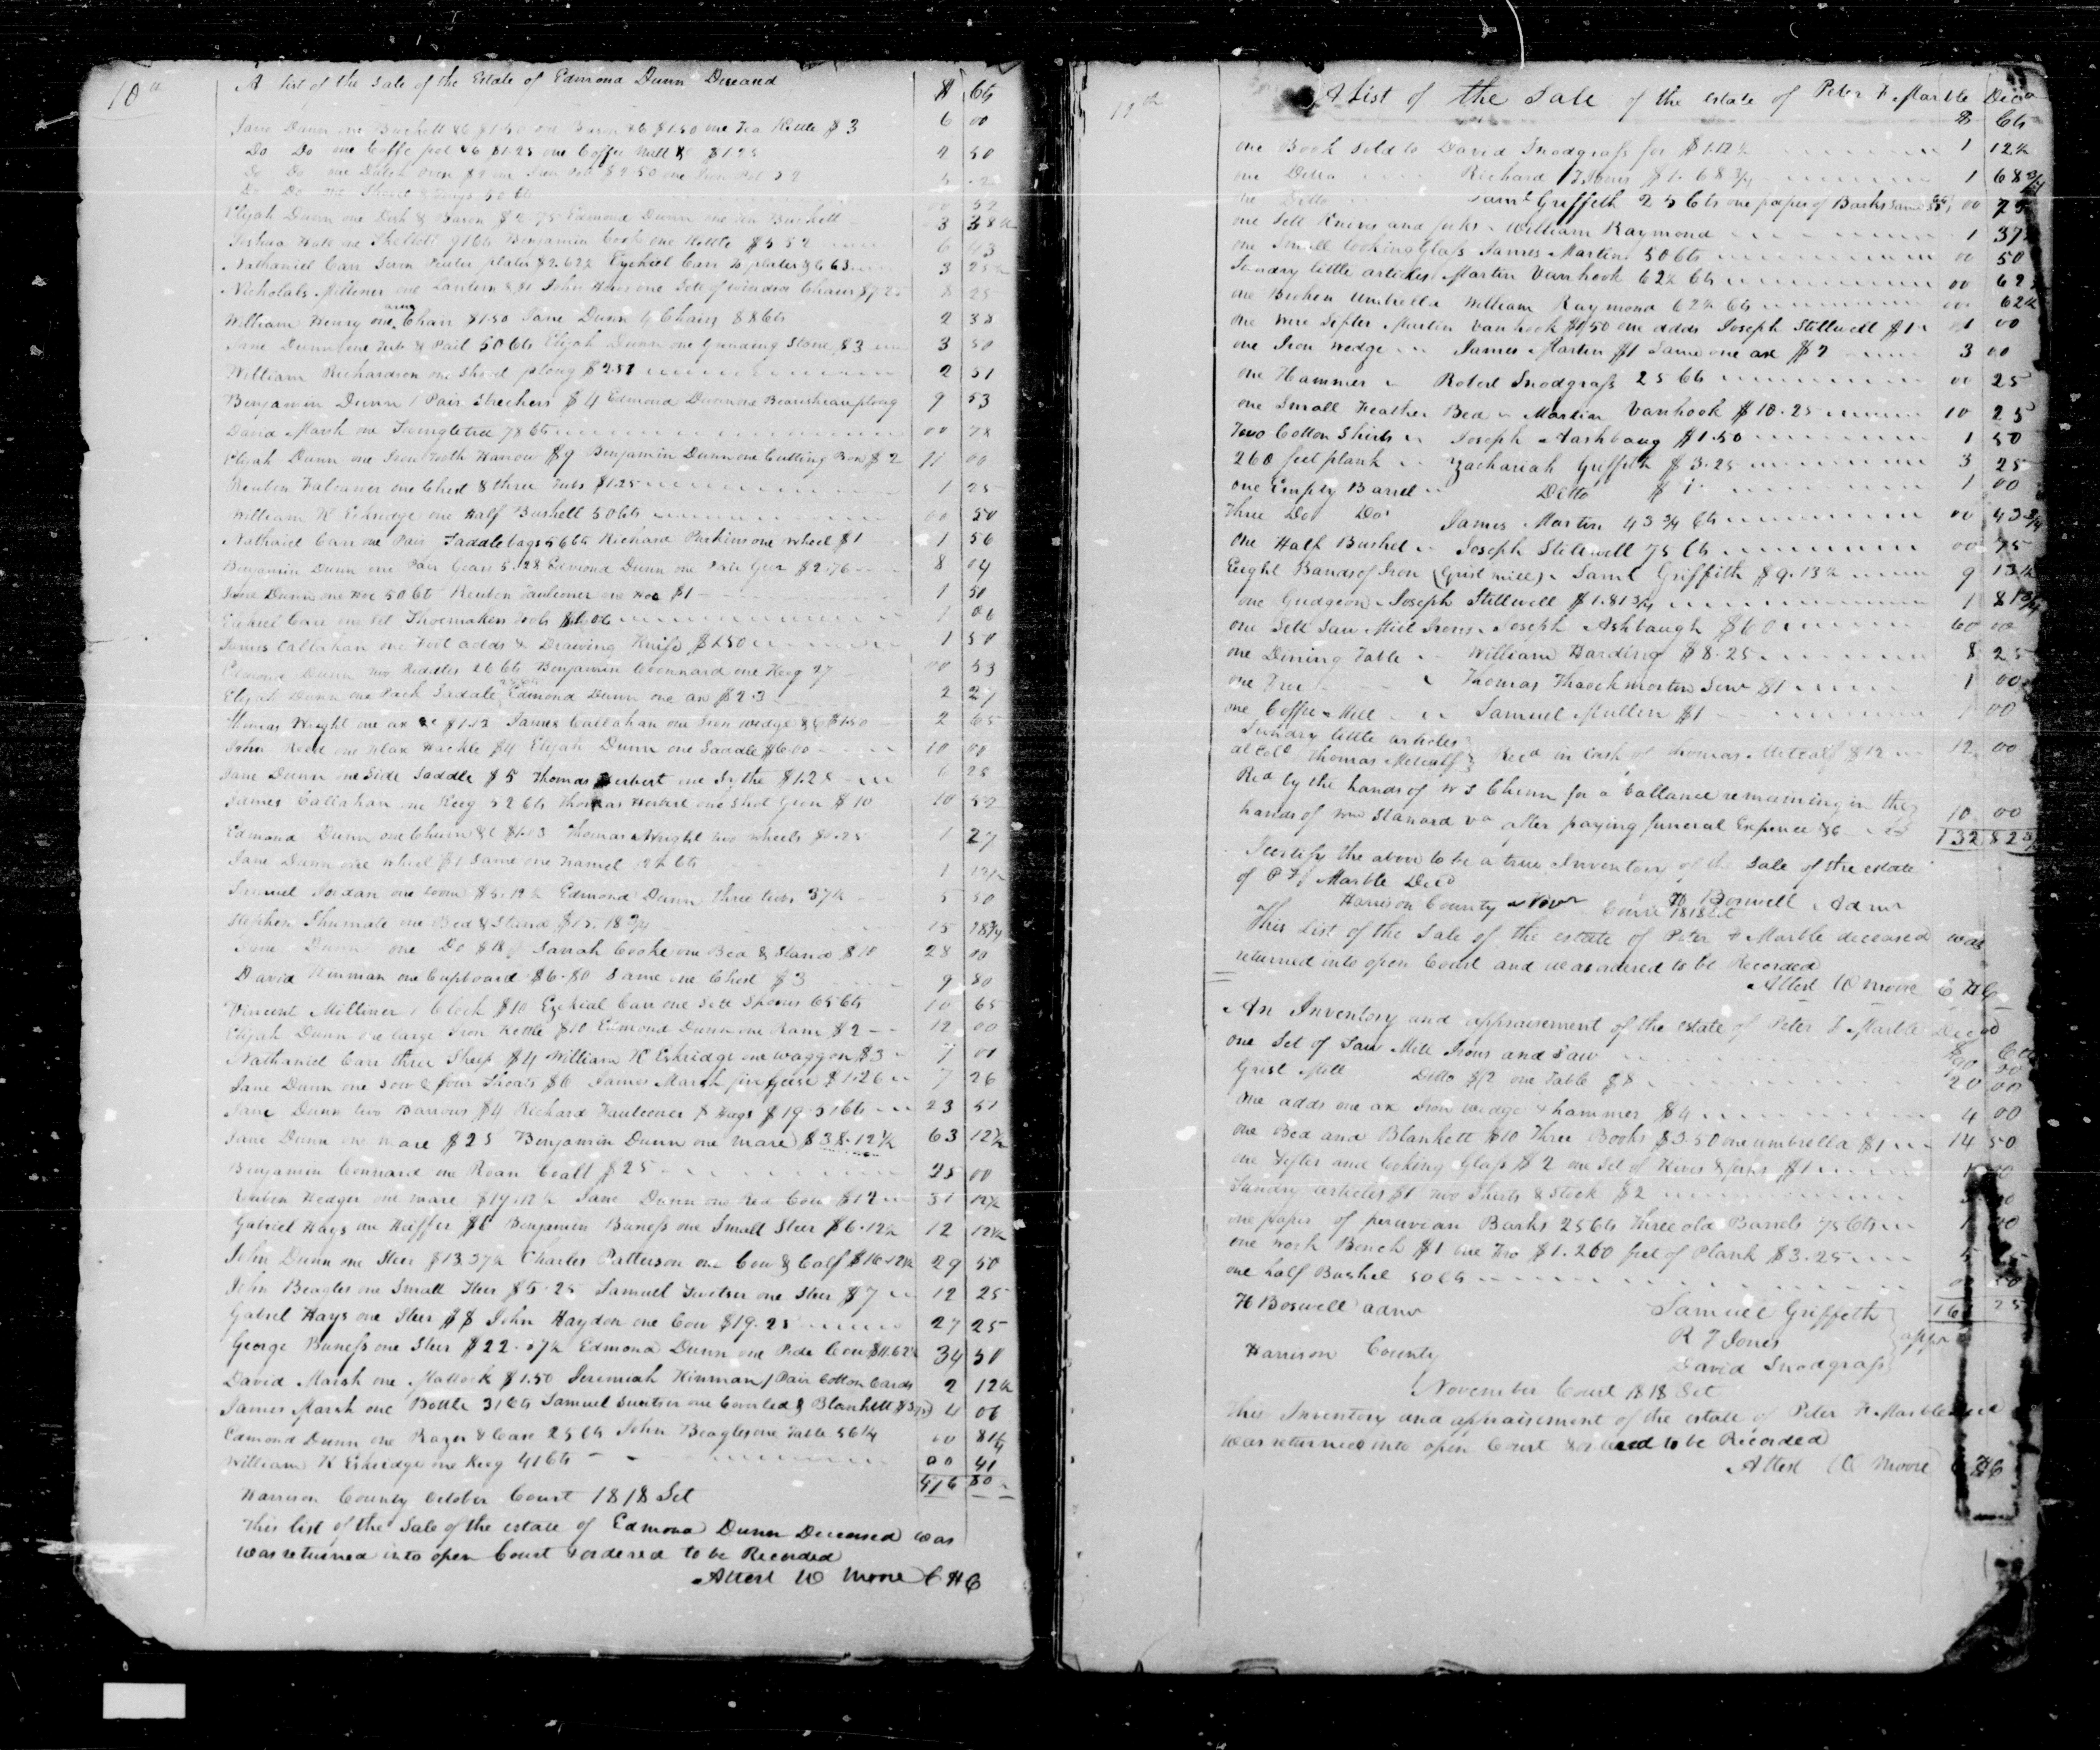 10th
A list of the Sale of the Estate of Edmond Dunn Deceasd $ Cts
Jane Dunn one Buckett &c $1.50 one Bason &c $1.50 one Tea Kettle $3 6 00
Do Do one Coffe pot &c $1.25 one Coffee Mill &c $1.25 2 50
Do Do one Dutch oven $2 one
Do Do one Shovel & Tongs 50 cts
Elijah Dunn one Dish & Bason $2.75 Edmond Dunn one Buckett 3 38½
Joshua Hall one Skellett 91 Cts Benjamin Cook one Kittle $5 52 6 43
Nathaniel Carr Seven Pewter plates $2.62½ Ezekiel Carr plates &c 63 3 25½
Nicholals Milliner one Lantern &c $1 John one Sett of windsor Chairs $7.25 8 25
William Henry one arm Chair $1.50 Jane Dunn 4 Chairs 88 Cts 2 38
Jane Dunn one Tub & Pail 50 Cts Elijah Dunn one Grinding Stone $3 3 50
William Richardson one Shovel plough $2.51 2 51
Benjamin Dunn 1 Pair Strechers $4 Edmond Dunn one Bearshear ploug 9 53
David Marsh one Swingletree 78 cts 00 78
Elijah Dunn one Iron Tooth Harrow $9 Benjamin Dunn one Cutting Box $2 11 00
Reuben Falconer one Chest & three Tubs $1.25 1 25
William K Eskridge one Half Bushell 50 cts 00 50
Nathaniel Carr one Pair Saddlebags 56 cts Richard Parkins one wheel $1 1 56
Benjamin Dunn one Pair Gears 5.28 Edmond Dunn one Pair Gear $2.76 8 04
Jane Dunn one Hoe 50 Cts Reuben Faulconer one Hoe $1 1 50
Ezekiel Carr one Set Shoemakers Tools $1.06 1 06
James Callahan one Foot adds & Drawing Knife $1.50 1 50
Edmond Dunn two Riddles 26 Cts Benjamin Connard one Keeg 27 00 53
Elijah Dunn one Pack Saddle Edmond Dunn one ax $2.3 2 27
Thomas Wright one ax &c $1.12 James Callahan one Iron wedge &c $1.50 2 65
John Reed one Flax Hackle $4 Elijah Dunn one Saddle $6.00 10 00
Jane Dunn one Side Saddle $5 Thomas Herbert one Sythe $1.25 6 25
James Callahan one Keeg 52 Cts Thomas Herbert one Shot Gun $10 10 52
Edmond Dunn one Churn &c $1.13 Thomas Wright two wheels $1.25 1 27
Jane Dunn one Wheel $1 Same one Tramel 12½ Cts 1 12½
Samuel Jordan one Loom $5.12½ Edmond Dunn three tubs 37½ 5 50
Stephen Shumate one Bed & Stand $15.18¾ 15 18¾
Jane Dunn one Do $18 Sarrah Cooke one Bed & Stand $10 28 00
David Hinman one Cupboard $6.80 Same one Chest $3 9 80
Vincent Milliner 1 Clock $10 Ezekial Carr one Sett Spoons 65 Cts 10 65
Elijah Dunn one large Iron Kettle $10 Edmond Dunn one Ram $2 12 00
Nathaniel Carr three Sheep $4 William K Eskridge one waggon $3 7 00
Jane Dunn one Sow & four Shoats $6 James Marsh five Geese $1.26 7 26
Jane Dunn two Barrows $4 Richard Faulconer 8 Hogs $19.51 Cts 23 51
Jane Dunn one mare $25 Benjamin Dunn one mare $38.12½ 63 12½
Benjamin Connard one Roan Coalt $25 25 00
Reuben Hedger one mare $19.12½ Jane Dunn one Red Cow $12 31 12½
Gabriel Hays one Heiffer $6 Benjamin Buness one Small Steer $6.12½ 12 12½
John Dunn one Steer $13.37½ Charles Patterson one Cow & Calf $16.12½ 29 50
John Beagles one Small Steer $5.25 Samuel Switser one Steer $7 12 25
Gabriel Hays one Steer $8 John Haydon one Cow $19.25 27 25
George Buness one Steer $22.87½ Edmond Dunn one Pide Cow $11.62½ 34 50
David Marsh one Mattock $1.50 Jeremiah Hinman 1 Pair Cotton Cards 2 12½
James Marsh one Bottle 31 Cts Samuel Switser one Coverled & Blankett 4 06
Edmond Dunn one Razor & Case 25 Cts John Beagles one Table 56¼ 00 81¼
William K Eskridge one Keeg 41 Cts 00 41
416 80
Harrison County October Court 1818 Sct
This list of the Sale of the estate of Edmond Dunn Deceased was
was returned into open Court & ordered to be Recorded
Attest W Moore C H C
11th
A List of the Sale of the estate of Peter F Marble Decd
$ Cts
one Book Sold to David Snodgrass for $1.12½ 1 12½
one Ditto Richard F Jones $1.68¾ 1 68¾
one Ditto Saml Griffeth 25 Cts one paper of Barks Same 00 75
one Sett Knives and forks William Raymond 1 37½
one Small looking Glass James Martin 50 cts 00 50
Sundry little articles Martin Vanhook 62½ Cts 00 62½
one Broken Umbrella William Raymond 62½ Cts 00 62½
one were Sefter Martin Vanhook one adds Joseph Stillwell $1 1 00
one Iron wedge James Martin $1 Same one ax $2 3 00
one Hammer Robert Snodgrass 25 Cts 00 25
one Small Feather Bed Martin Vanhook $10.25 10 25
Two Cotton Shirts Joseph Ashbaug $1.50 1 50
260 feet plank Zachariah Griffith $3.25 3 25
one Empty Barrel Ditto $1 1 00
Three Do Do James Martin 43¾ Cts 00 43¾
one Half Bushel Joseph Stillwell 75 Cts 00 75
Eeight Bands of Iron (Grist mill) Saml Griffith $9.13½ 9 13½
one Gudgeon Joseph Stillwell $1.81¾ 1 81¾
one Sett Saw Mill Irons Joseph Ashbaugh $60 60 00
one Dining Table William Harding $8.25 8 25
one Thomas Throckmorton Senr $1 1 00
one Coffee Mill Samuel Mullin $1 1 00
Sundry little articles
at Colo Thomas Metcalf Recd in Cash of Thomas Metcalf $12 12 00
Recd by the hands of W S Chinn for a ballance remaining in the
hands of Wm Stanard after paying funeral Expence &c 10 00
132 82¾
I certify the above to be a true Inventory of the Sale of the estate
of P F Marble Decd
H Boswell Admr
Harrison County Novr Court 1818 Sct
This List of the Sale of the estate of Peter F Marble deceased was
returned into open Court and was ordered to be Recorded
Attest W Moore C H C
An Inventory and appraisement of the estate of Peter F Marble Decd
$ Cts
one Set of Saw Mill Irons and Saw
Grist Mill Ditto $12 one Table $8 20 00
one adds one ax Iron wedge & hammer $4 4 00
one Bed and Blankett $10 Three Books $3.50 one umbrella $1 14 50
one Sefter and looking Glass $2 one Set of Knives & forks $1
Sundry articles $1 two Shirts & Stock $2
one paper of peruvian Barks 25 Cts Three old Barrels 75 Cts 1 00
one work Bench $1 one $1.260 feet of Plank $3.25
one half Bushel 50 Cts
H Boswell admr
Samuel Griffeth
R F Jones
David Snodgrass
Harrison County
November Court 1818 Sct
This Inventory and appraisement of the estate of Peter F Marble
was returned into open Court & ordered to be Recorded
Attest W Moore C H C